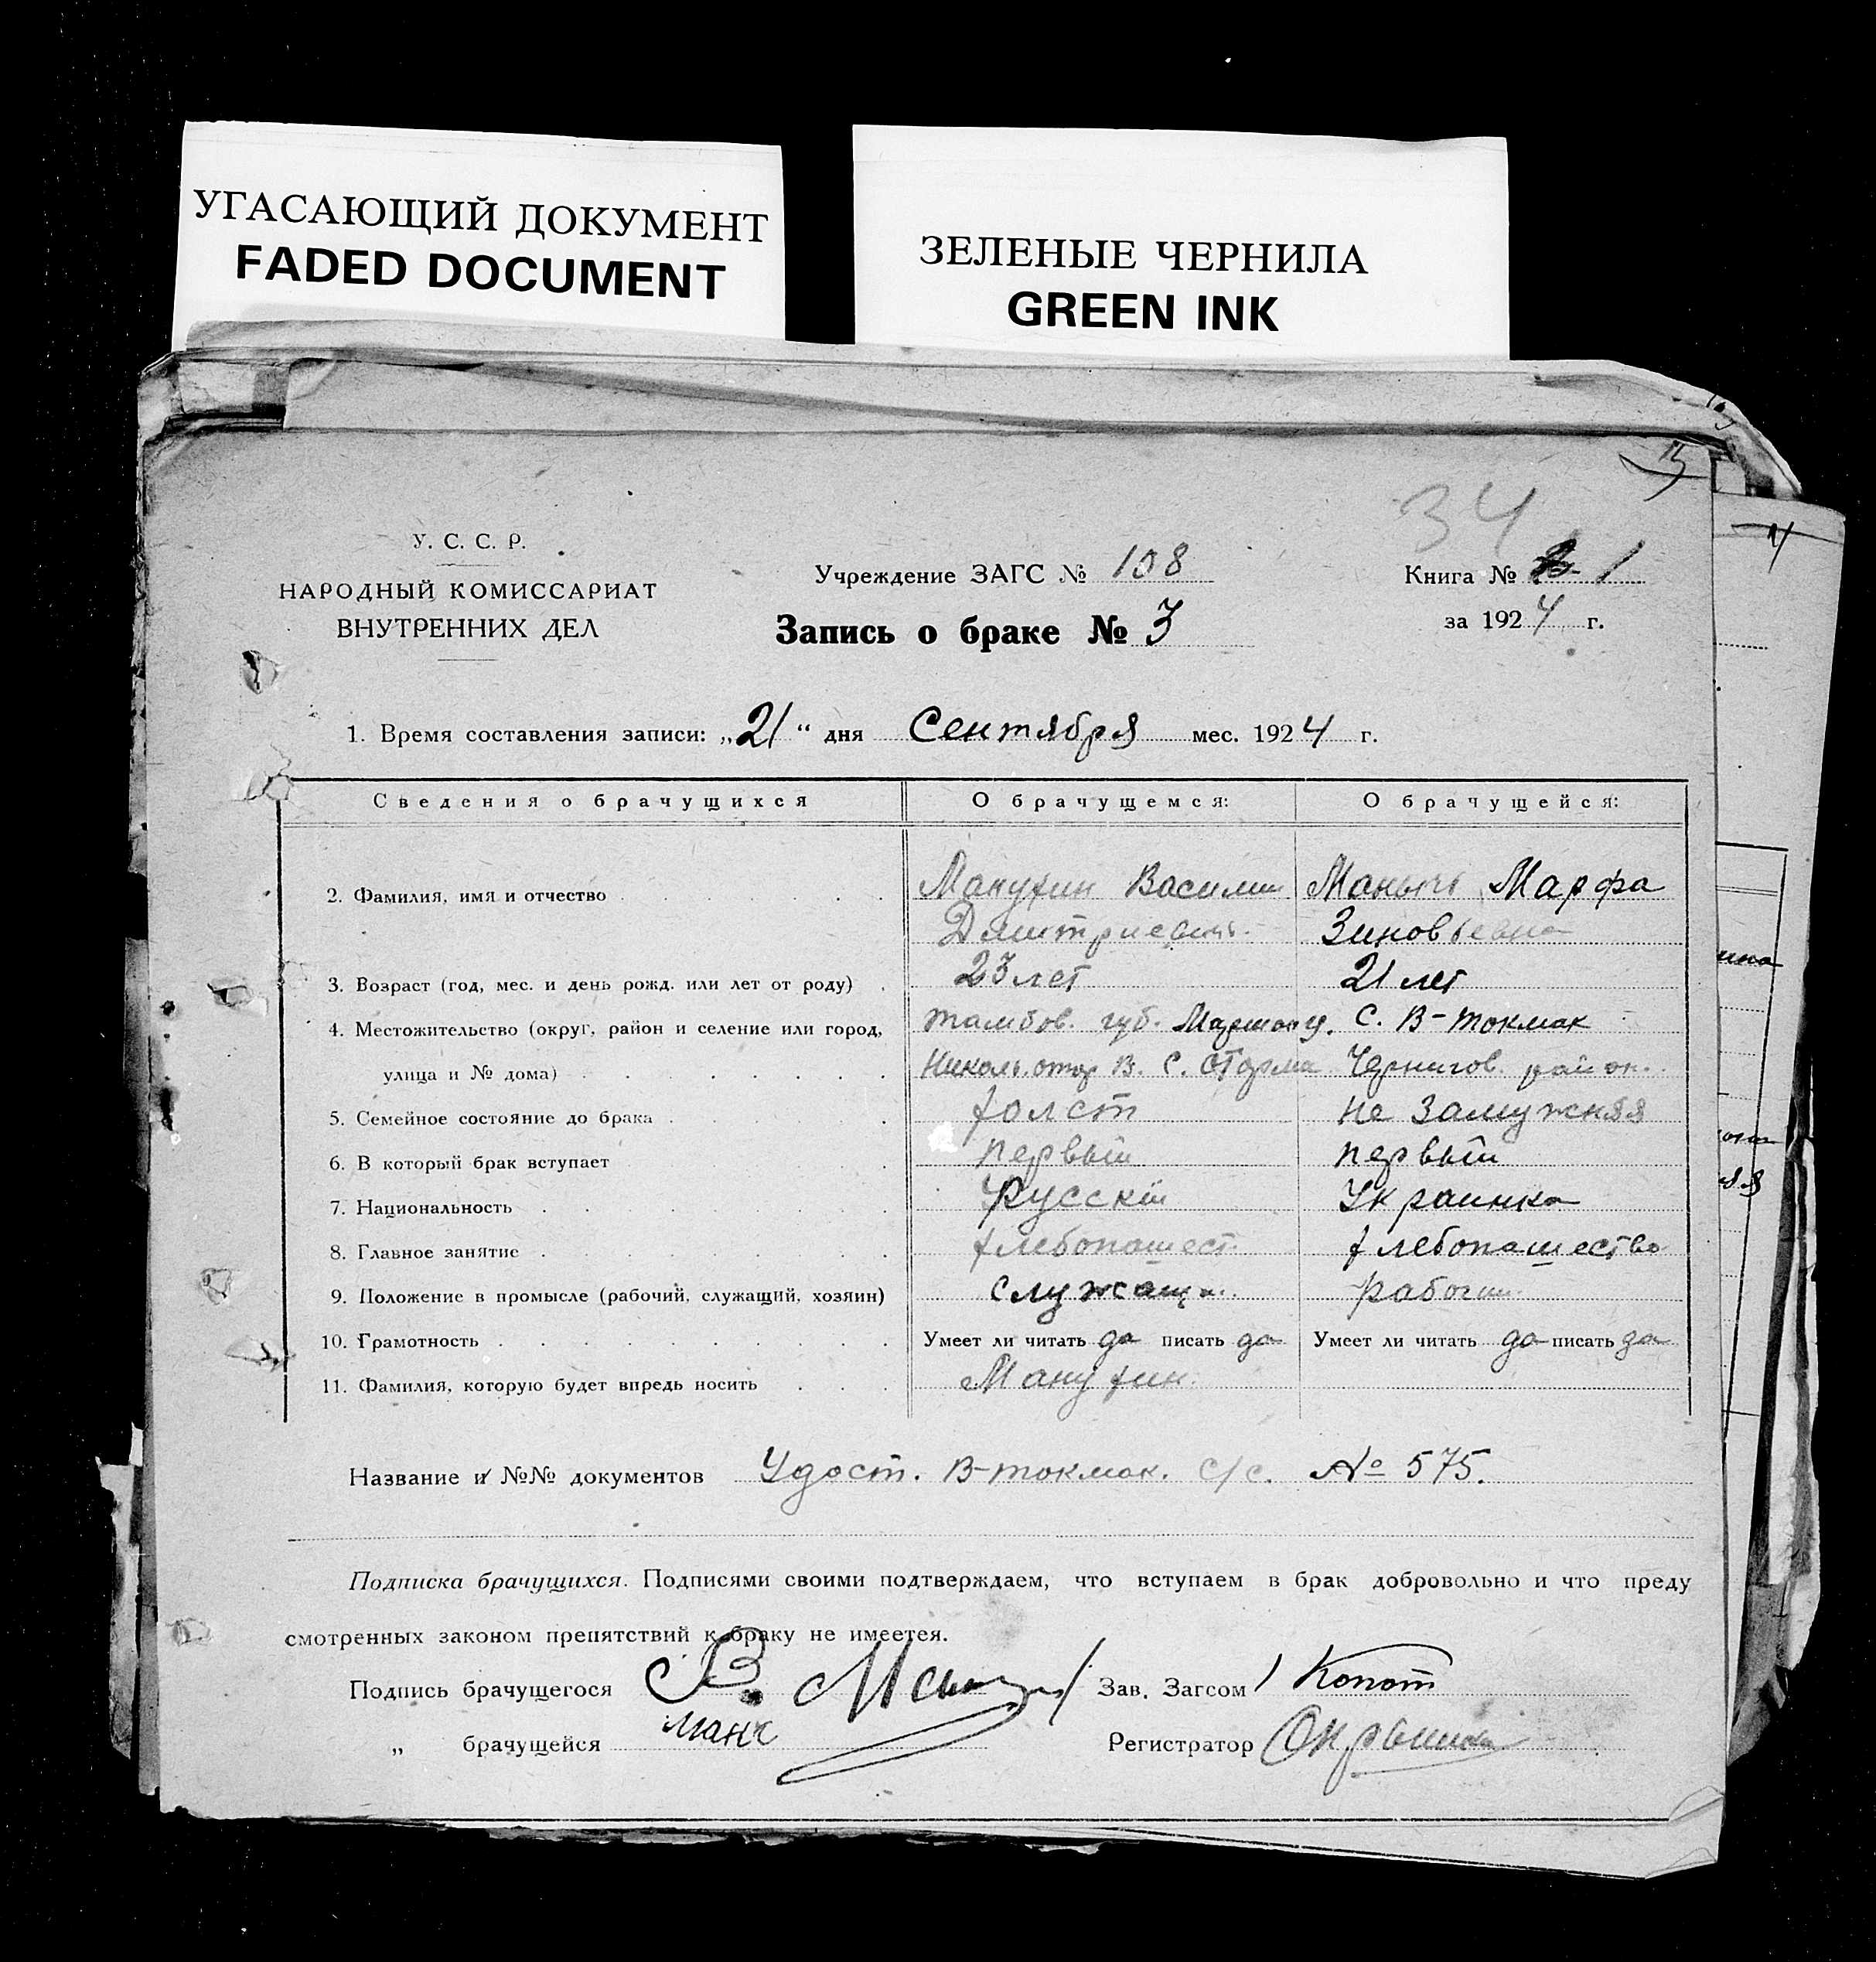 УГАСАЮЩИЙ ДОКУМЕНТ
FADED DOCUMENT
ЗЕЛЕНЫЕ ЧЕРНИЛА
GREEN INK
5
34
4
У. С. С. Р.
НАРОДНЫЙ КОМИССАРИАТ
ВНУТРЕННИХ ДЕЛ
Учреждение ЗАГС № 108
Запись о браке № 3
Книга № 1
за 1924 г.
1. Время составления записи: „21“ дня Сентября мес. 1924 г.
Сведения о брачущихся О брачущемся: О брачущейся:
2. Фамилия, имя и отчество Манухин Василий Маныч Марфа
Дмитриевич Зиновьевна
3. Возраст (год, мес. и день рожд. или лет от роду) 23 лет 21 лет
4. Местожительство (округ, район и селение или город, Тамбов. губ. С. В-Токмак
улица и № дома) В. С. Чернигов. район.
5. Семейное состояние до брака холст не замужняя
6. В который брак вступает первый первый
7. Национальность Русскій Украинка
8. Главное занятие хлебопашест. хлебопашество
9. Положение в промысле (рабочий, служащий, хозяин) служащи. рабочи.
10. Грамотность Умеет ли читать да писать да Умеет ли читать да писать да
11. Фамилия, которую будет впредь носить Манухин.
Название и №№ документов Удост. В-Токмак. С/С. № 575.
Подписка брачущихся. Подписями своими подтверждаем, что вступаем в брак добровольно и что преду
смотренных законом препятствий к браку не имеется.
Подпись брачущегося В. Зав. Загсом Копот
„ брачущейся Манч Регистратор